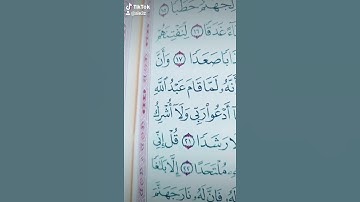 TikTok
لِجَهَنَّمَ حَطَبًا ١٥
ـآءً غَدَقًا ١٦ لِّنَفْتِنَهُمْ
ـابًا صَعَدًا ١٧ وَأَنَّ
أَنَّهُۥ لَمَّا قَامَ عَبْدُ ٱللَّهِ
ـآ أَدْعُوا۟ رَبِّى وَلَآ أُشْرِكُ
لَا رَشَدًا ٢١ قُلْ إِنِّى
مُلْتَحَدًا ٢٢ إِلَّا بَلَٰغًا
ـلَهُۥ فَإِنَّ لَهُۥ نَارَ جَهَنَّمَ